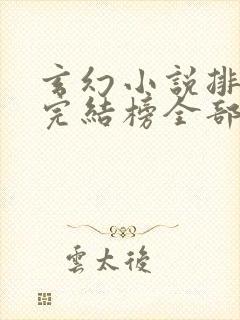 玄幻小說排
完結榜全部
雲太後